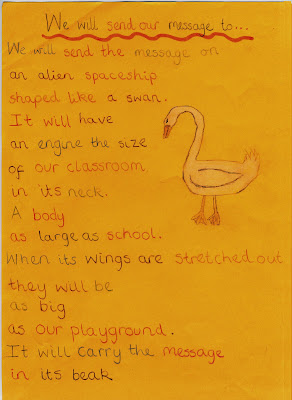 We will send our message to...
We will send the message on
an alien spaceship
shaped like a swan.
It will have
an engine the size
of our classroom
in its neck.
A body
as large as school.
When its wings are stretched out
they will be
as big
as our playground.
It will carry the message
in its beak